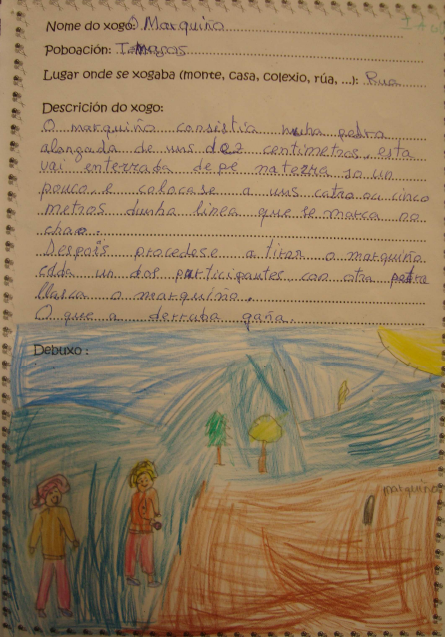 Nome do xogo: O Marquiño
Poboación: Tomagos
Lugar onde se xogaba (monte, casa, colexio, rúa, ...): Rua
Descrición do xogo:
O marquiño consistía nunha pedra
alongada de uns dez centimetros, esta
vai enterrada de pe na terra so un
pouco, e colocase a uns catro ou cinco
metros dunha linea que se marca no
chao.
Despois procedese a tirar o marquiño
cada un dos participantes con otra pedra
llasca o marquiño.
O que a derruba gaña.
Debuxo:
marquiño